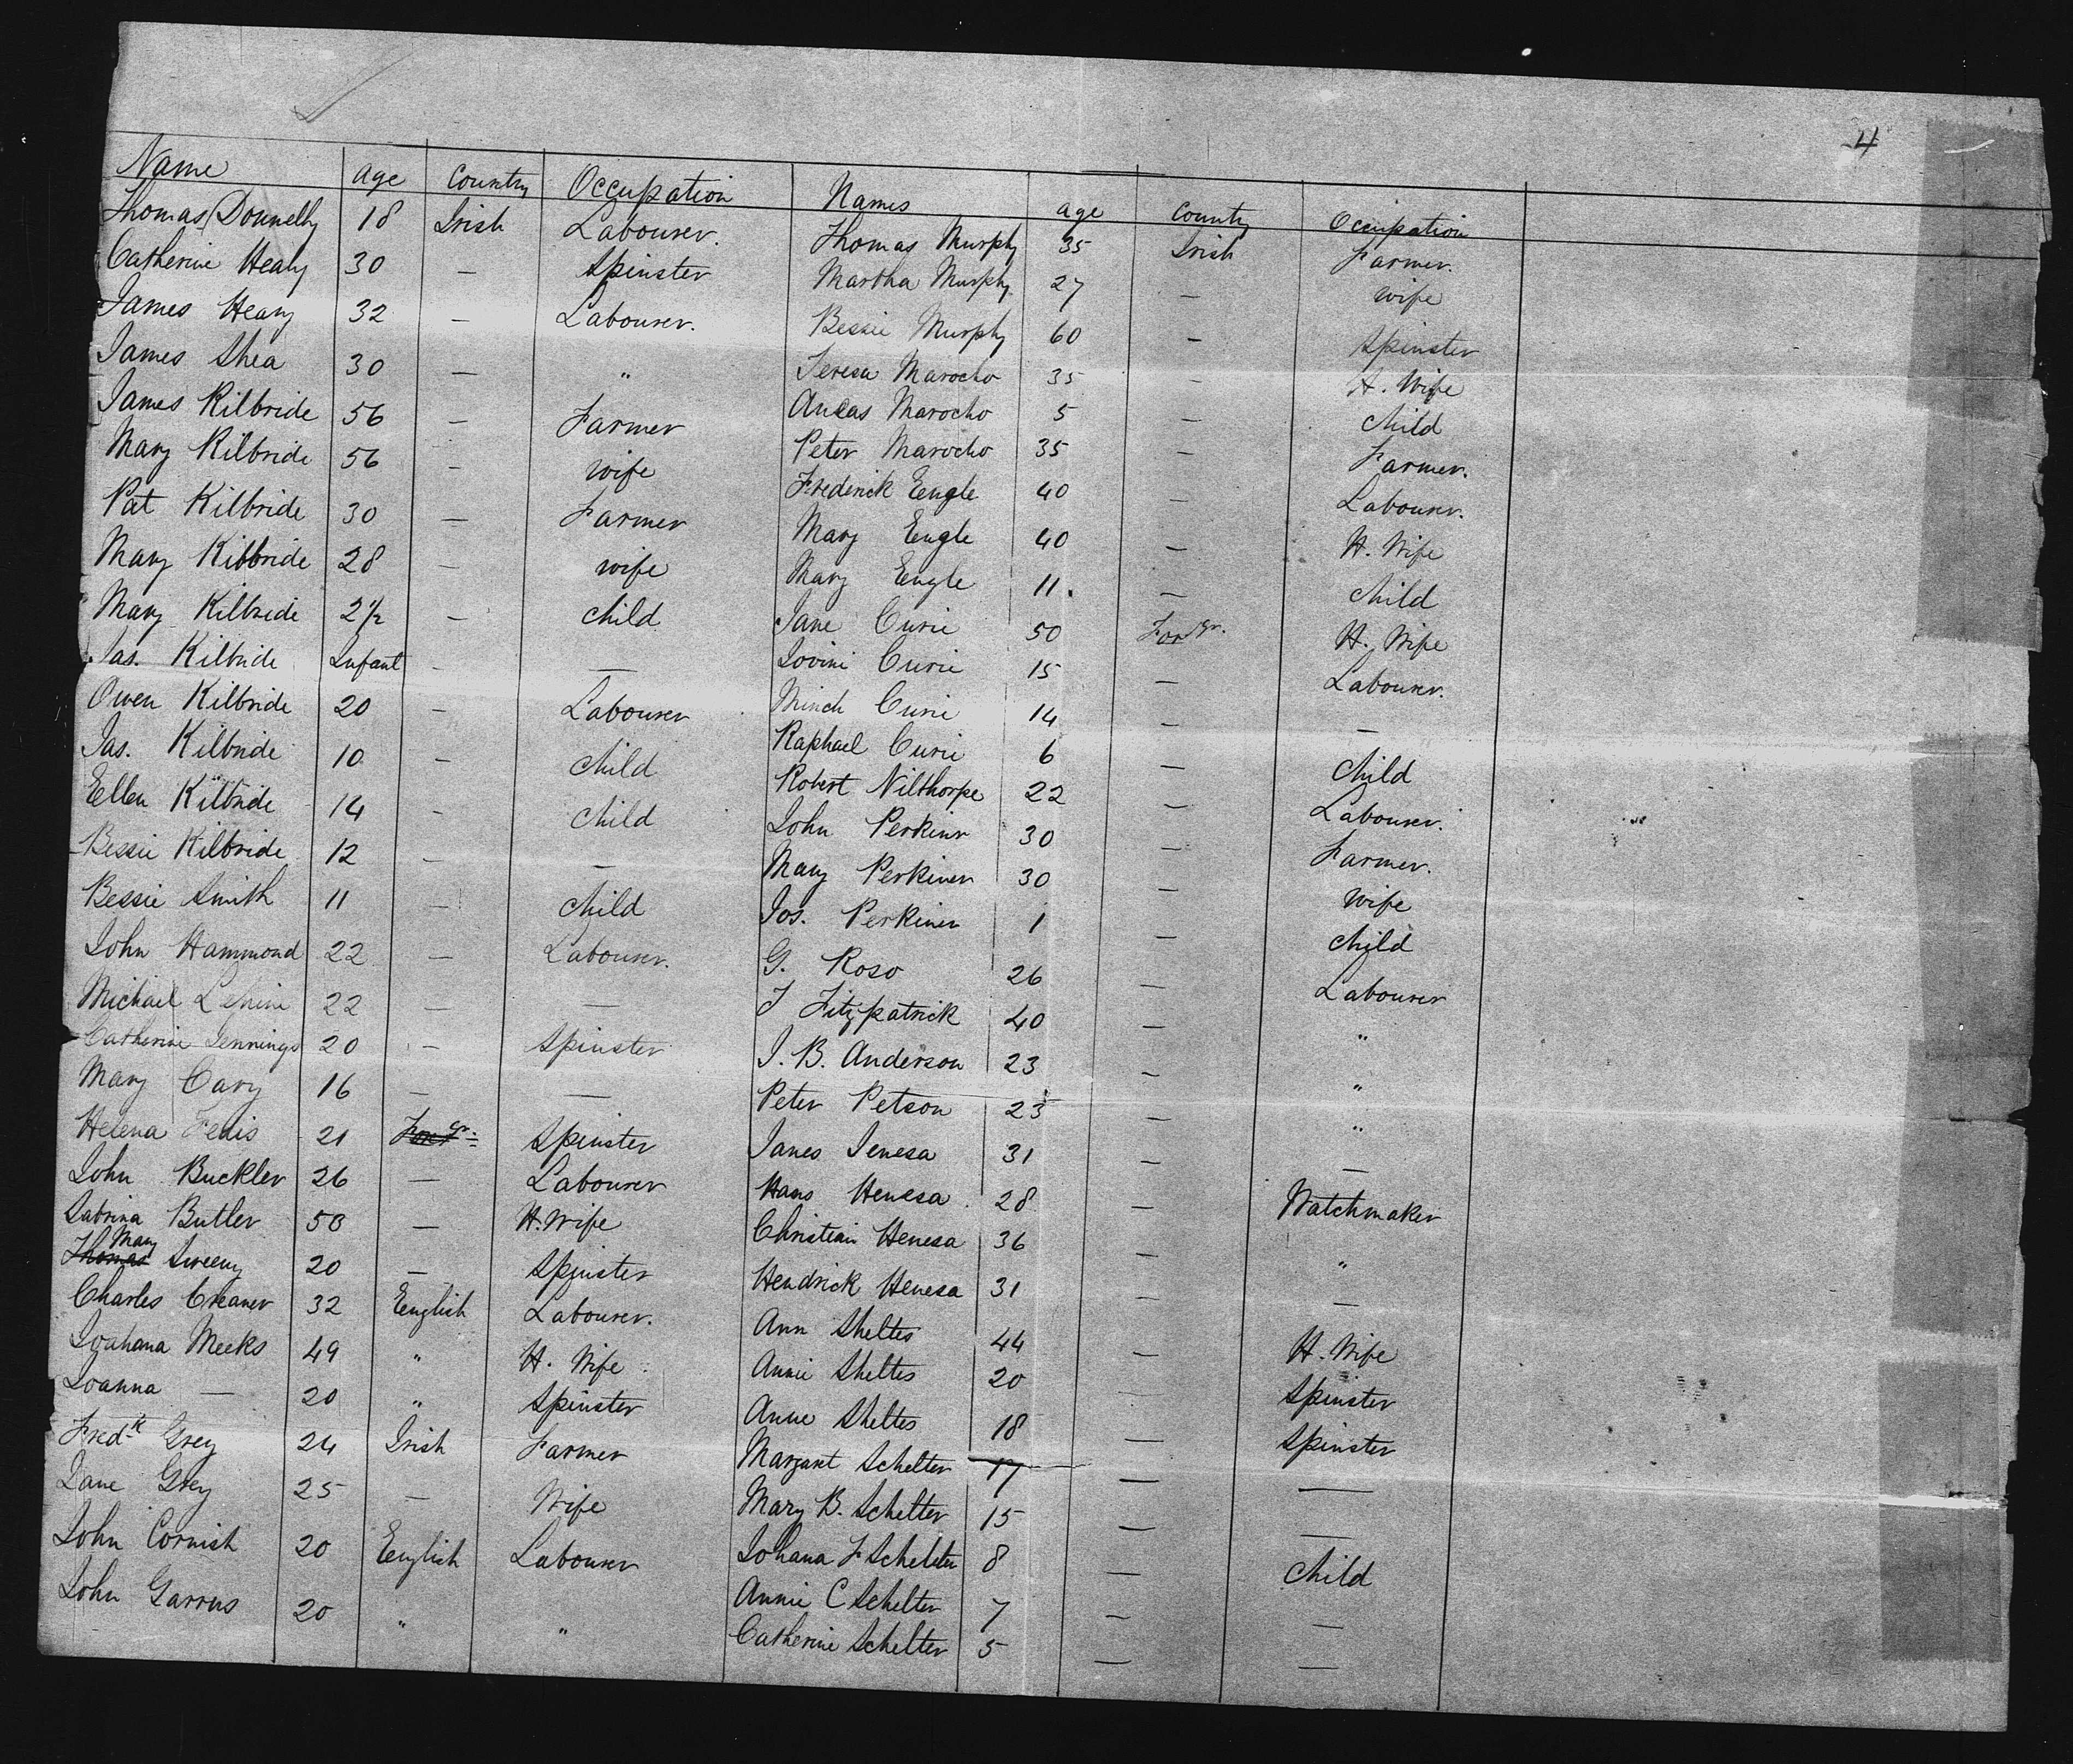 4
Name Age Country Occupation
Thomas Donnelly 18 Irish Labourer.
Catherine Healy 30 — Spinster
James Heany 32 — Labourer.
James Shea 30 — "
James Kilbride 56 — Farmer
Mary Kilbride 56 — wife
Pat Kilbride 30 — Farmer
Mary Kilbride 28 — wife
Mary Kilbride 2½ — child
Jas. Kilbride Infant — —
Owen Kilbride 20 — Labourer
Jas. Kilbride 10 — child
Ellen Kilbride 14 — child
Bessie Kilbride 12 — —
Bessie Smith 11 — child
John Hammond 22 — Labourer.
Michael 22 — —
Catherine Jennings 20 — Spinster
Mary Cary 16 — —
Helena 21 Forgr. Spinster
John Buckler 26 — Labourer
Sabrina Butler 50 — H. Wife
Thomas Mary Sweeny 20 — Spinster
Charles Creaner 32 English Labourer.
Joahana Meeks 49 " H. Wife
Joanna — 20 " Spinster
Fredk Grey 24 Irish Farmer
Jane Grey 25 — Wife
John Cornish 20 English Labourer
John Garrus 20 " "
Names age County Occupation
Thomas Murphy 35 Irish Farmer.
Martha Murphy 27 — wife
Bessie Murphy 60 — Spinster
Teresa Marocho 35 — H. Wife
Marocho 5 — child
Peter Marocho 35 — Farmer.
Frederick Eengle 40 — Labourer.
Mary Eengle 40 — H. Wife
Mary Eengle 11. — child
Jane Curie 50 Forgr. H. Wife
Jovini Curie 15 — Labourer.
Minch Curie 14 — —
Raphael Curie 6 — child
Robert Nilthorpe 22 — Labourer.
John Perkins 30 — Farmer.
Mary Perkiner 30 — Wife
Jos. Perkiner 1 — child
G. Roso 26 — Labourer
J Fitzpatrick 40 — "
J. B. Anderson 23 — "
Peter Petson 23 — "
Janes Jenesa 31 — —
Hans Henesa 28 — Watchmaker
Christian Henesa 36 — "
Hendrick Henesa 31 — —
Ann Sheltes 44 — H. Wife
Annie Sheltes 20 — Spinster
Anne Sheltes 18 — Spinster
Margaret Schelter 17 — —
Mary B. Schelter 15 — —
Johana F Schelter 8 — child
Annie C Schelter 7 — —
Catherine Schelter 5 — —